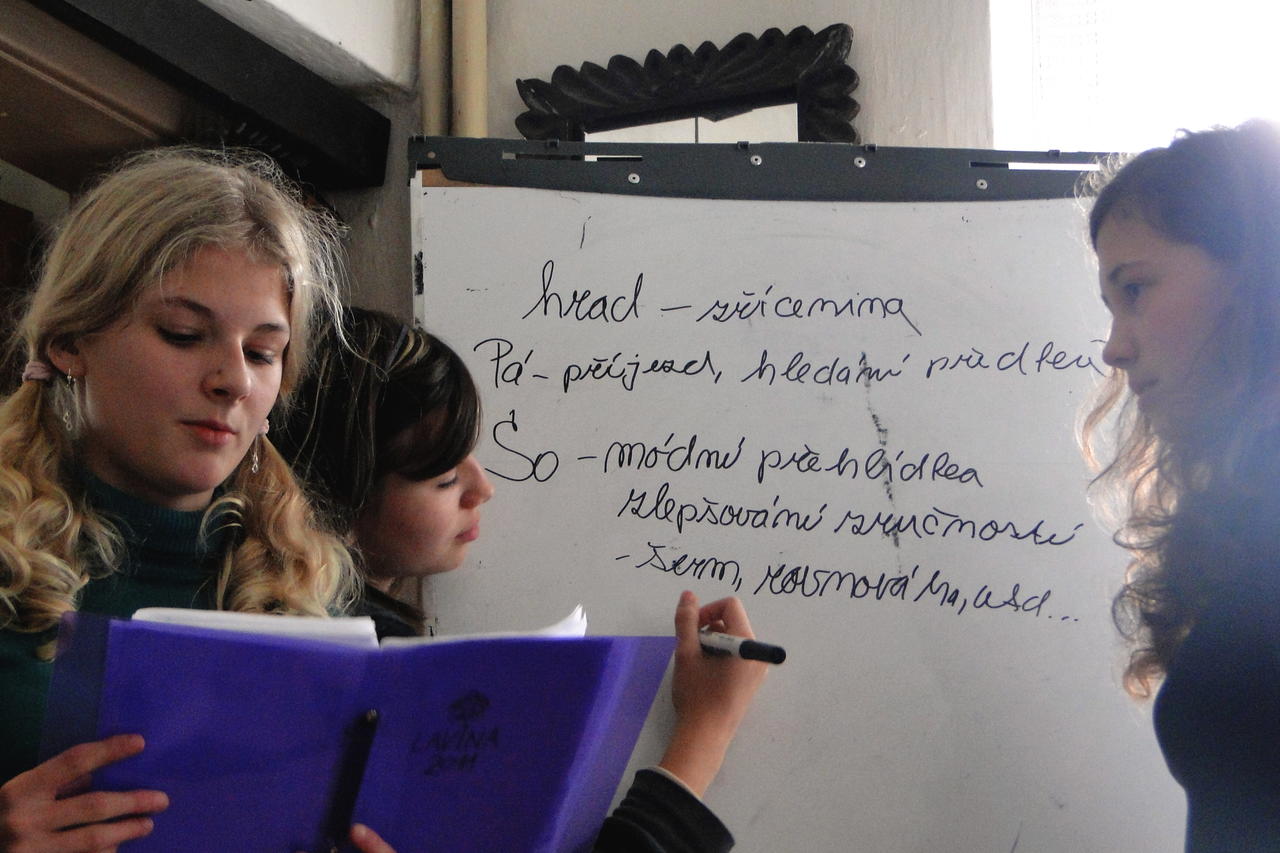 hrad – zřícenina
Pá - příjezd, hledání předků
So - módní přehlídka
zlepšování zručnosti
- šerm, rovnováha, atd...
LAVINA
2011